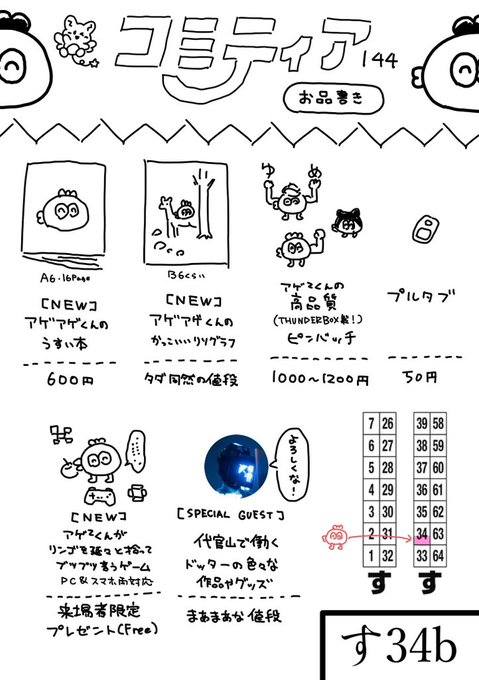 コミティア144
お品書き
A6・16Page
[NEW]
アゲアゲくんの
うすい本
600円
B6くらい
[NEW]
アゲアゲくんの
かっこいいリソグラフ
タダ同然の値段
ゆ
め
アゲアゲくんの
高品質
(THUNDERBOX製!)
ピンバッチ
1000〜1200円
プルタブ
50円
[NEW]
アゲアゲくんが
リンゴを延々と拾って
ブツブツ言うゲーム
PC&スマホ両対応
来場者限定
プレゼント(Free)
よろしくな!
[SPECIAL GUEST]
代官山で働く
ドッターの色々な
作品やグッズ
まあまあな値段
7 26 39 58
6 27 38 59
5 28 37 60
4 29 36 61
3 30 35 62
2 31 34 63
1 32 33 64
す す
す34b